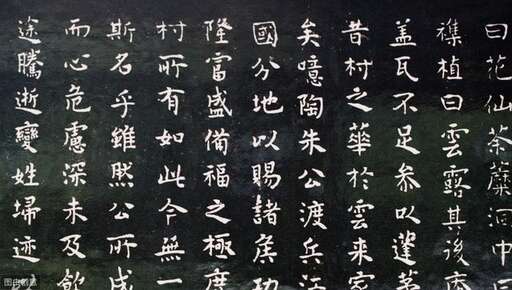 曰花仙茶蘼洞中曰
植曰雲露其後
盖瓦不足参以蓬茅
昔村之華於雲来家
矣噫陶朱公渡兵江
國分地以賜諸庶功
隆富盛備福之極度
村所有如此今無一
斯名乎雖然公所成
而心危慮深未及飲
途騰逝變姓埽迹